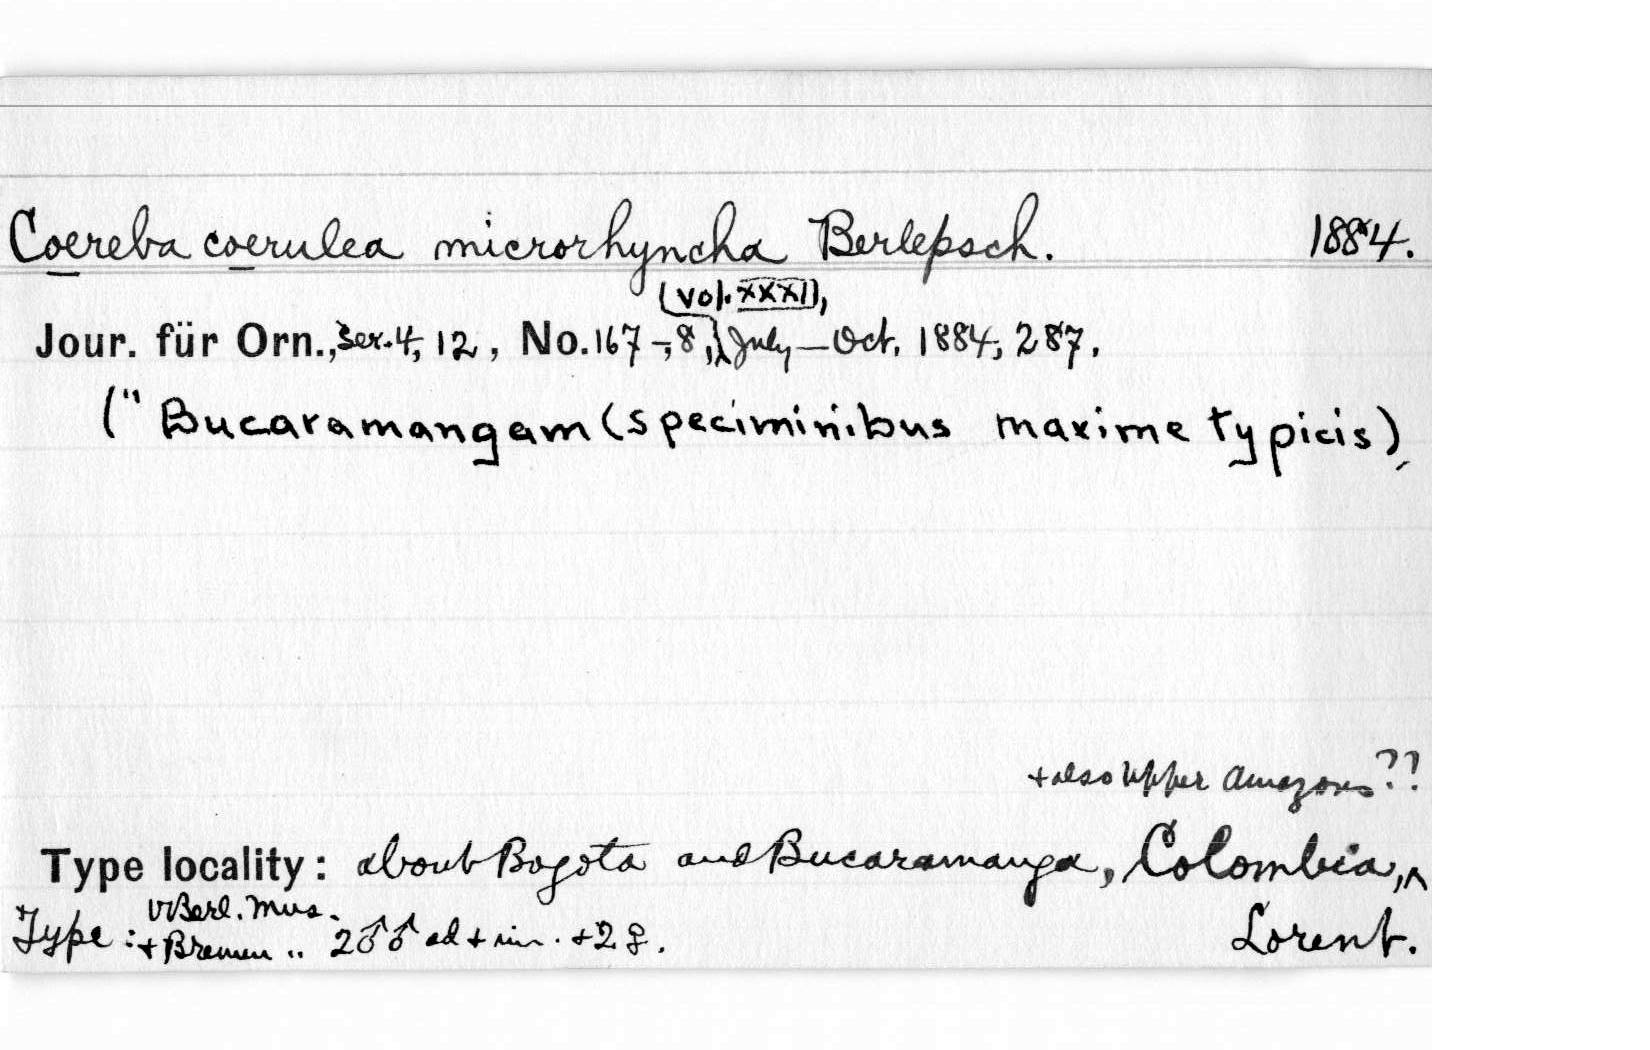 Coereba coerulea microrhyncha Berlepsch. 1884.
(Vol. XXXII),
Jour. für Orn., Ser. 4, 12, No. 167-8, July-Oct. 1884, 287.
(" Bucaramangam (speciminibus maxime typicis),
+ also Upper Amazons??
Type locality: about Bogota and Bucaramanga, Colombia, ^
V Berl. Mus.
Type: + Bremen " 2♂♂ ad + juv. + 2♀. Lorent.